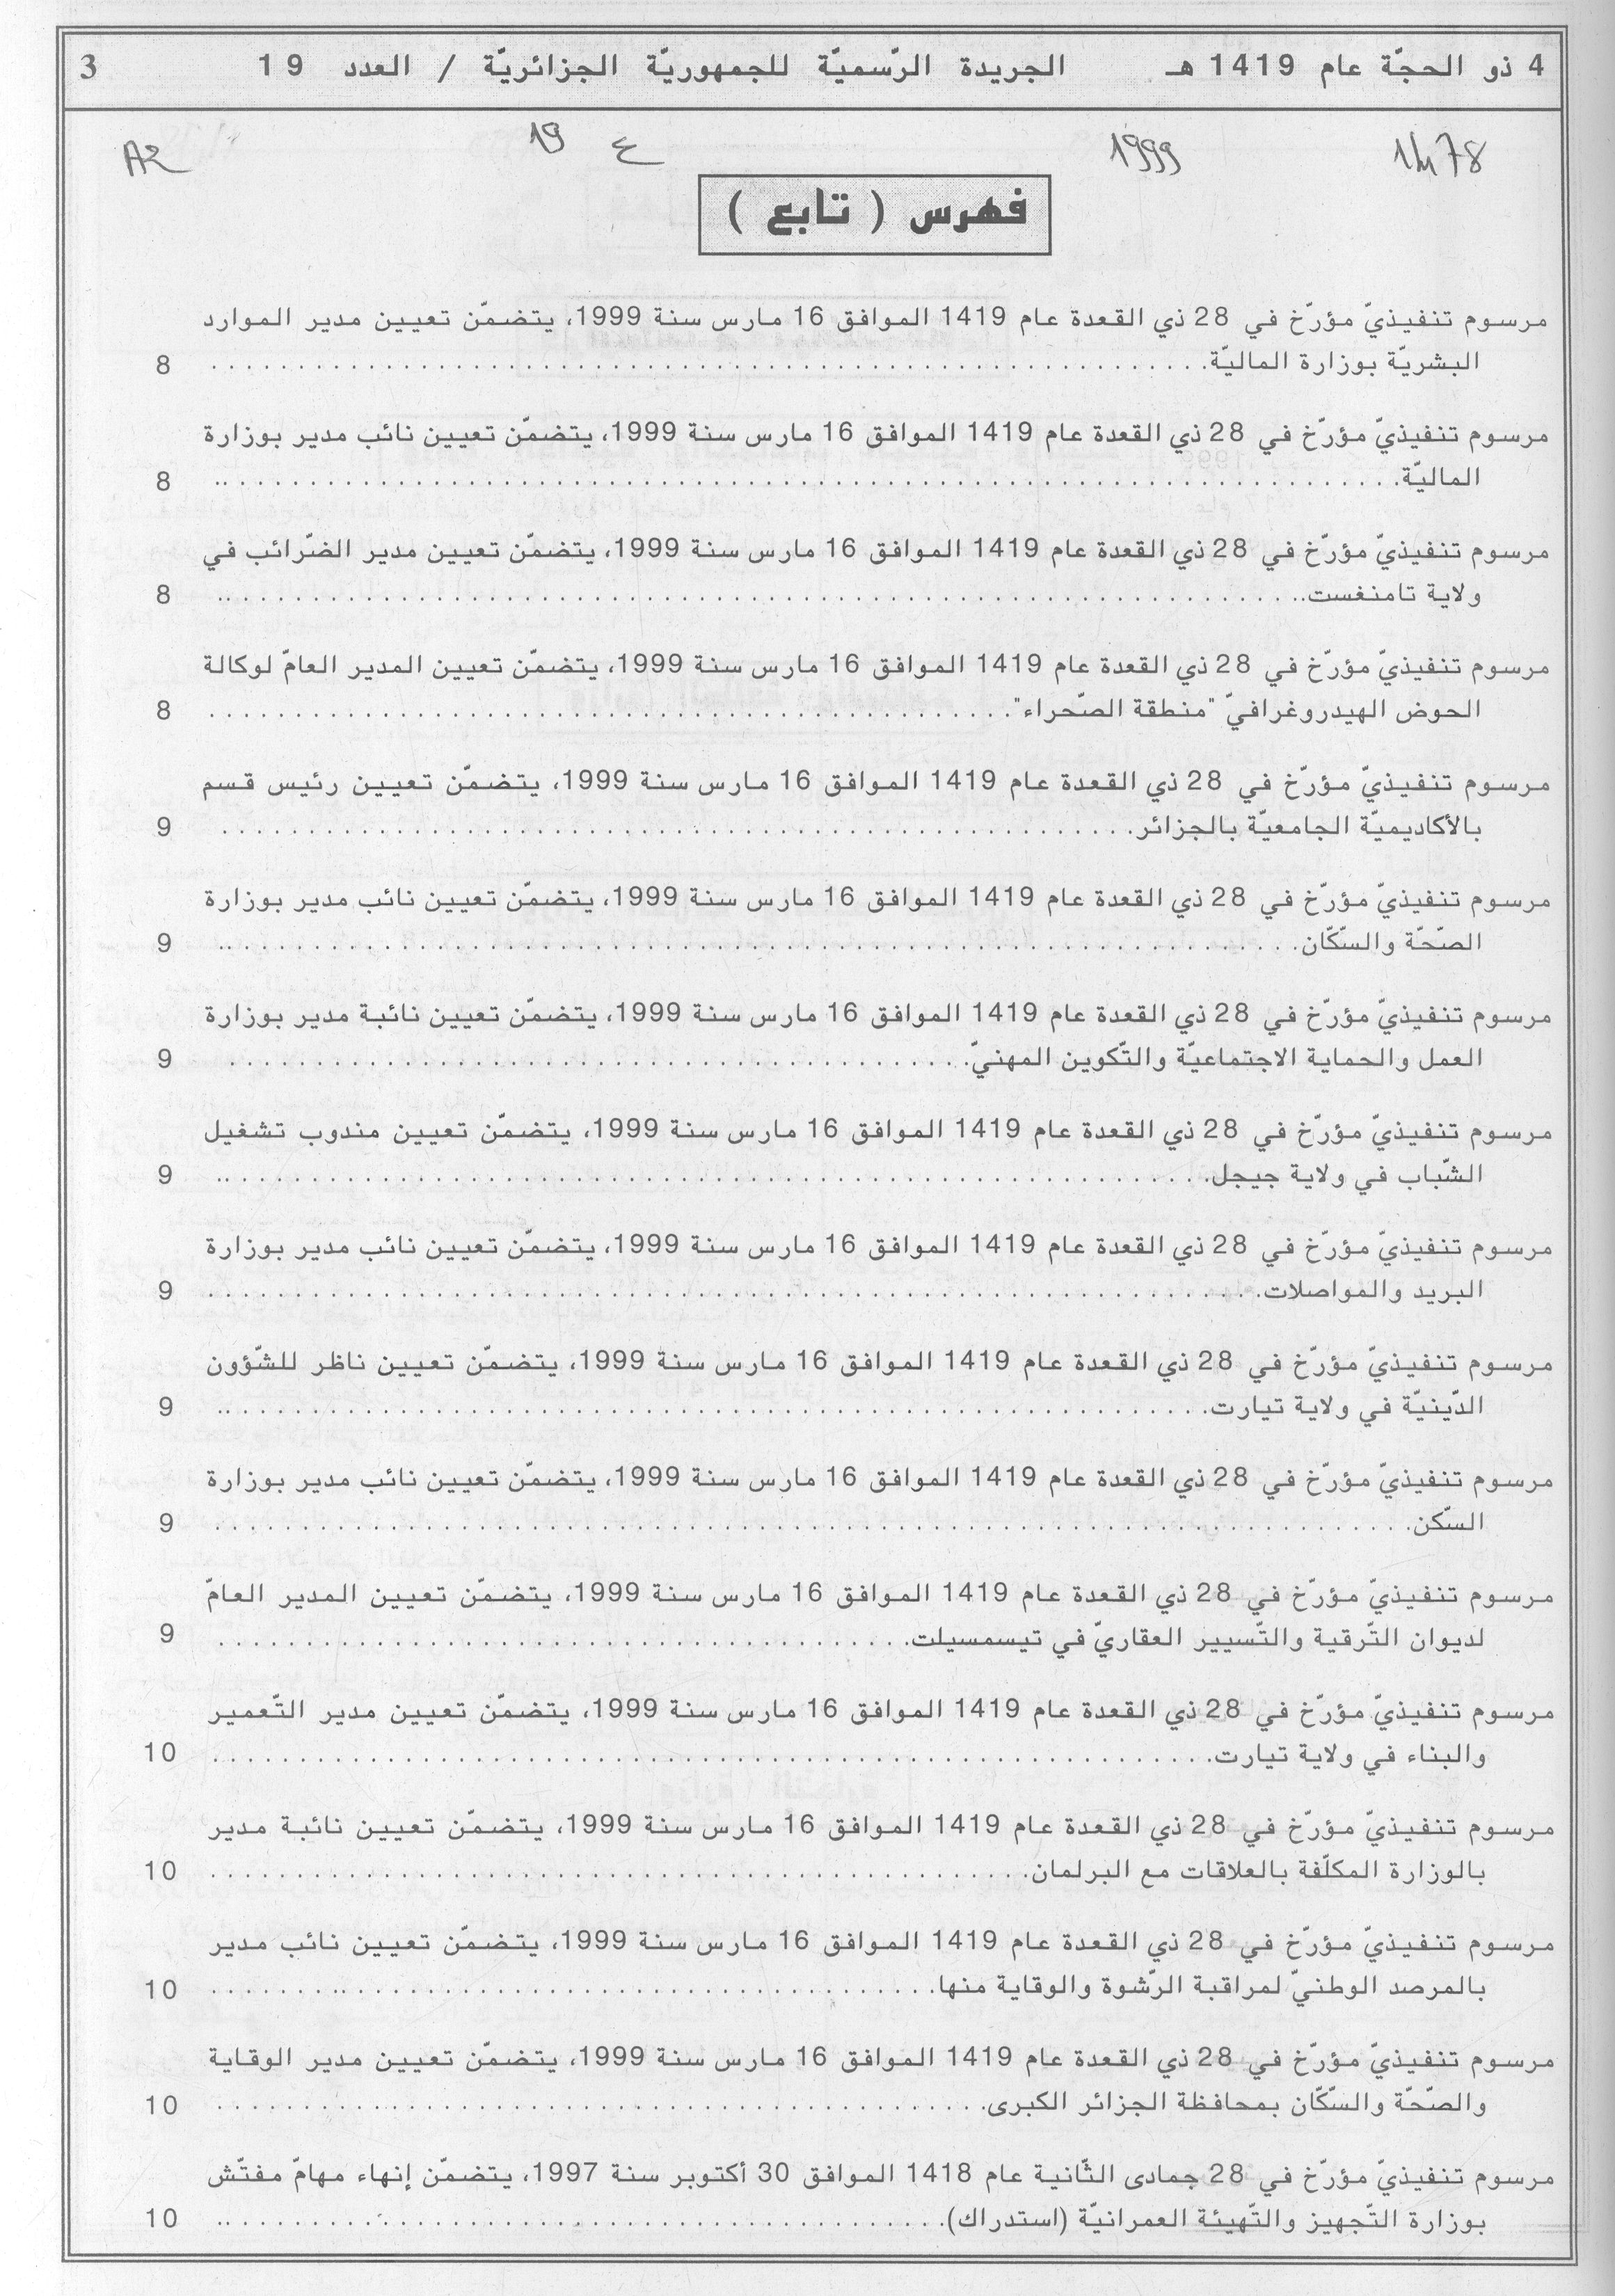 4 ذو الحجّة عام 1419 هـ الجريدة الرّسميّة للجمهوريّة الجزائريّة / العدد 19 3
1999 ع 19 A2
فهرس ( تابع )
مرسوم تنفيذيّ مؤرّخ في 28 ذي القعدة عام 1419 الموافق 16 مارس سنة 1999، يتضمّن تعيين مدير الموارد
البشريّة بوزارة الماليّة. 8
مرسوم تنفيذيّ مؤرّخ في 28 ذي القعدة عام 1419 الموافق 16 مارس سنة 1999، يتضمّن تعيين نائب مدير بوزارة
الماليّة. 8
مرسوم تنفيذيّ مؤرّخ في 28 ذي القعدة عام 1419 الموافق 16 مارس سنة 1999، يتضمّن تعيين مدير الضّرائب في
ولاية تامنغست. 8
مرسوم تنفيذيّ مؤرّخ في 28 ذي القعدة عام 1419 الموافق 16 مارس سنة 1999، يتضمّن تعيين المدير العامّ لوكالة
الحوض الهيدروغرافيّ "منطقة الصّحراء". 8
مرسوم تنفيذيّ مؤرّخ في 28 ذي القعدة عام 1419 الموافق 16 مارس سنة 1999، يتضمّن تعيين رئيس قسم
بالأكاديميّة الجامعيّة بالجزائر. 9
مرسوم تنفيذيّ مؤرّخ في 28 ذي القعدة عام 1419 الموافق 16 مارس سنة 1999، يتضمّن تعيين نائب مدير بوزارة
الصّحّة والسّكّان. 9
مرسوم تنفيذيّ مؤرّخ في 28 ذي القعدة عام 1419 الموافق 16 مارس سنة 1999، يتضمّن تعيين نائبة مدير بوزارة
العمل والحماية الاجتماعيّة والتّكوين المهنيّ. 9
مرسوم تنفيذيّ مؤرّخ في 28 ذي القعدة عام 1419 الموافق 16 مارس سنة 1999، يتضمّن تعيين مندوب تشغيل
الشّباب في ولاية جيجل. 9
مرسوم تنفيذيّ مؤرّخ في 28 ذي القعدة عام 1419 الموافق 16 مارس سنة 1999، يتضمّن تعيين نائب مدير بوزارة
البريد والمواصلات. 9
مرسوم تنفيذيّ مؤرّخ في 28 ذي القعدة عام 1419 الموافق 16 مارس سنة 1999، يتضمّن تعيين ناظر للشّؤون
الدّينيّة في ولاية تيارت. 9
مرسوم تنفيذيّ مؤرّخ في 28 ذي القعدة عام 1419 الموافق 16 مارس سنة 1999، يتضمّن تعيين نائب مدير بوزارة
السّكن. 9
مرسوم تنفيذيّ مؤرّخ في 28 ذي القعدة عام 1419 الموافق 16 مارس سنة 1999، يتضمّن تعيين المدير العامّ
لديوان التّرقية والتّسيير العقاريّ في تيسمسيلت. 9
مرسوم تنفيذيّ مؤرّخ في 28 ذي القعدة عام 1419 الموافق 16 مارس سنة 1999، يتضمّن تعيين مدير التّعمير
والبناء في ولاية تيارت. 10
مرسوم تنفيذيّ مؤرّخ في 28 ذي القعدة عام 1419 الموافق 16 مارس سنة 1999، يتضمّن تعيين نائبة مدير
بالوزارة المكلّفة بالعلاقات مع البرلمان. 10
مرسوم تنفيذيّ مؤرّخ في 28 ذي القعدة عام 1419 الموافق 16 مارس سنة 1999، يتضمّن تعيين نائب مدير
بالمرصد الوطنيّ لمراقبة الرّشوة والوقاية منها. 10
مرسوم تنفيذيّ مؤرّخ في 28 ذي القعدة عام 1419 الموافق 16 مارس سنة 1999، يتضمّن تعيين مدير الوقاية
والصّحّة والسّكّان بمحافظة الجزائر الكبرى. 10
مرسوم تنفيذيّ مؤرّخ في 28 جمادى الثّانية عام 1418 الموافق 30 أكتوبر سنة 1997، يتضمّن إنهاء مهامّ مفتّش
بوزارة التّجهيز والتّهيئة العمرانيّة (استدراك). 10